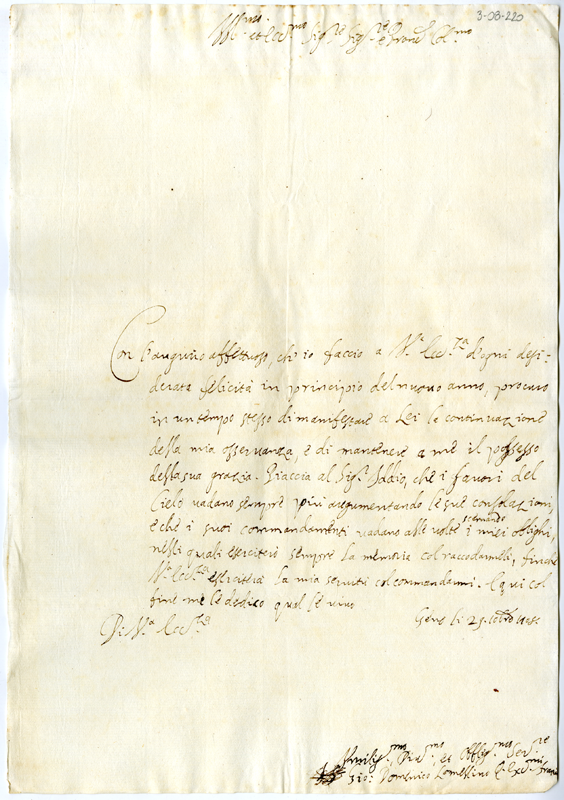 3-03-220
Ill.mo et Ecc.mo Sig.re Sig.re e Pron Col.mo
Con l'augurio affettuoso, che io faccio a V.a Ecc.za d'ogni desi-
derata felicità in principio del nuovo anno, procuro
in un tempo stesso di manifestare a Lei la continuazione
della mia osservanza, e di mantenere a me il possesso
della sua grazia. Piaccia al Sig.r Iddio, che i favori del
Cielo vadano sempre più augumentando le sue consolazioni,
e che i suoi commandamenti vadano alle volte scemando i miei oblighi,
nelli quali eserciterò sempre la memoria col raccodarmeli, finche
V.a Ecc.za eserciterà la mia servitù col commandarmi. E qui col
fine me le dedico qual le vivo
Di V.a Ecc.za
Geno.a li 29
Umiliss.mo, Div.mo, et Obblig.mo Ser.re
Gio: Domenico Lomellino